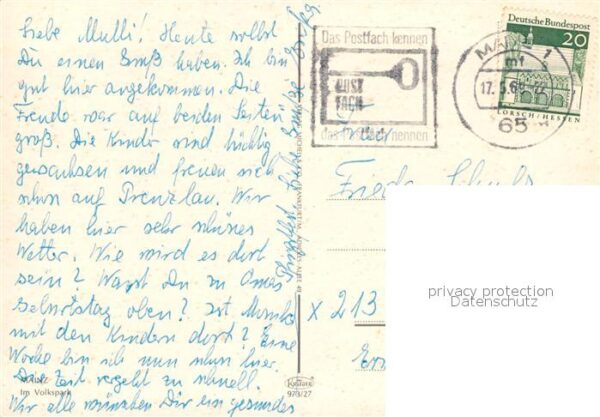 Liebe Mutti! Heute sollst
Du einen Gruß haben. Ich bin
gut hier angekommen. Die
Freude war auf beiden Seiten
groß. Die Kinder sind tüchtig
gewachsen und freuen sich
schon auf Prenzlau. Wir
haben hier sehr schönes
Wetter. Wie wird es dort
sein? Warst Du zu Omas
Geburtstag oben? Ist Monika
mit den Kindern dort? Eine
Woche bin ich nun schon hier.
Die Zeit vergeht zu schnell.
Wir alle wünschen Dir ein gesundes
Pfingstfest. Liebe Grüße
MAINZ
Im Volkspark
Krüger
973/27
Das Postfach kennen
POST
FACH
das Postfach nennen
MAINZ 1
mf
17.5.69
65
Deutsche Bundespost
20
LORSCH/HESSEN
Frieda
X 213
privacy protection
Datenschutz